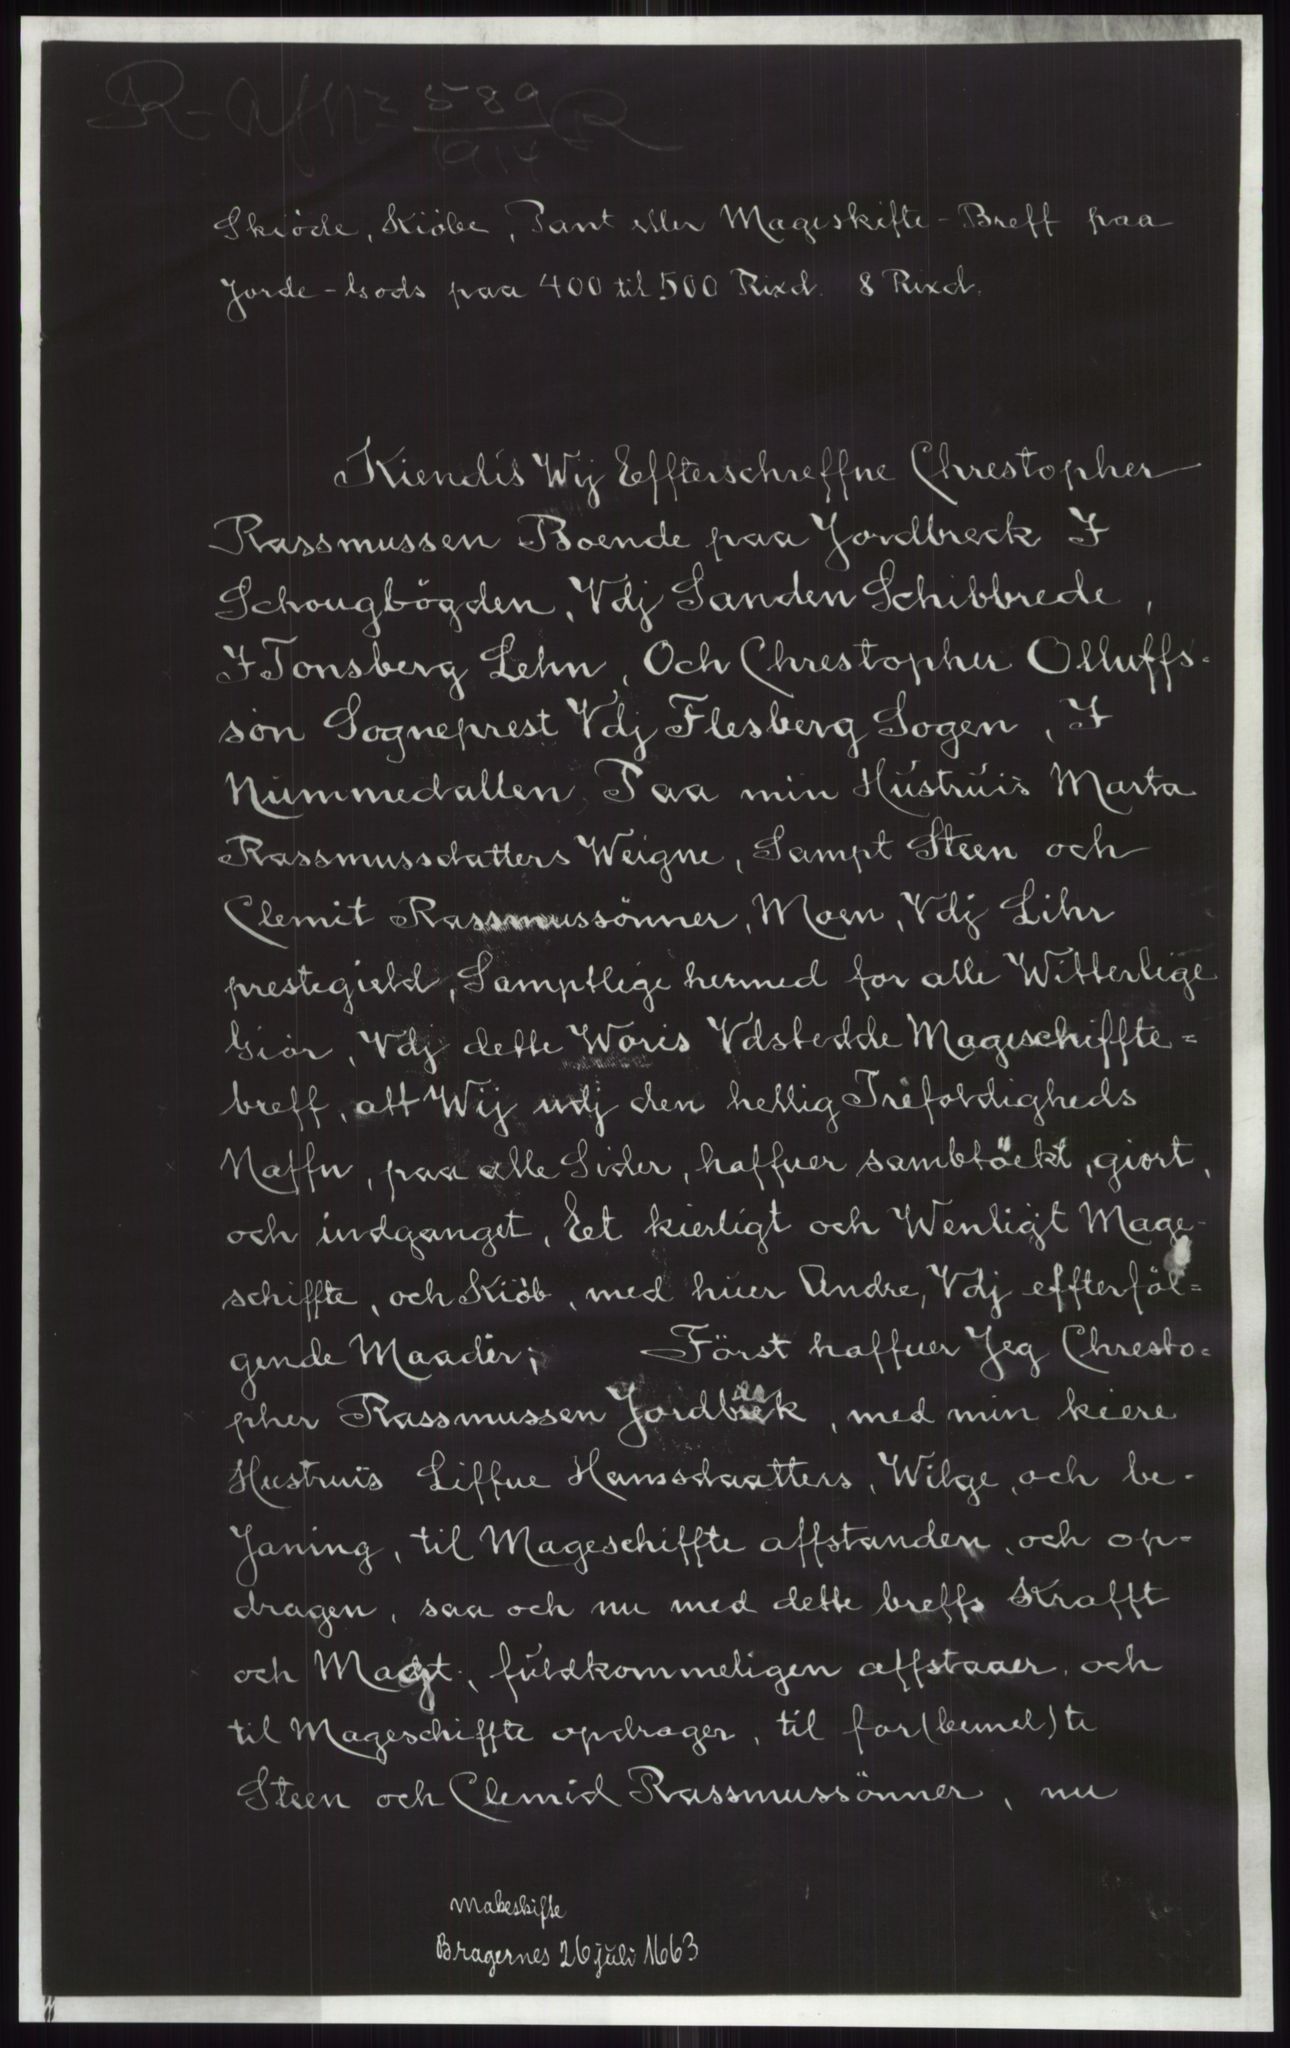 R-Afnr 589
1914 R
Skiöde, Kiöbe, Pant eller Mageskifte-Breff paa
Jorde-Gods paa 400 til 500 Rixd. 8 Rixd.
Kiendis Wij Effterschreffne Chrestopher
Rassmussen Boende paa Jordbreck I
Schougbögden, Vdj Sanden Schibbrede,
I Tonsberg Lehn, Och Christopher Olluffs-
sön Sogneprest Vdj Flesberg Sogen, I
Nummedallen, Paa min Hustruis Marta
Rassmussdatters Weigne, Sampt Steen och
Clemit Rassmussönner, Moen, Vdj Lihr
prestegield, Samptlige hermed for alle Witterlige
Giör, Vdj dette Woris Vdstedde Mageschiffte=
breff, att Wij udj den hellig Trefoldigheds
Naffn, paa alle Sider, haffuer sambtöckt, giort,
och indganget, Eet kierligt och Wenligt Mage-
schiffte, och Kiöb, med huer Andre, Vdj effterföl=
gende Maader; Först haffuer Jeg Chresto=
pher Rassmussen Jordbreck, med min kiere
Hustruis Liffue Hanssdaatters, Wilge, och be-
Janing, til Mageschiffte affstanden, och op=
dragen, saa och nu med dette breffs Krafft
och Magt, fuldkommeligen affstaaer, och
til Mageschiffte opdrager, til for(bemel)te
Steen och Clemid Rassmussönner, nu
Makeskifte
Bragernes 26 juli 1663